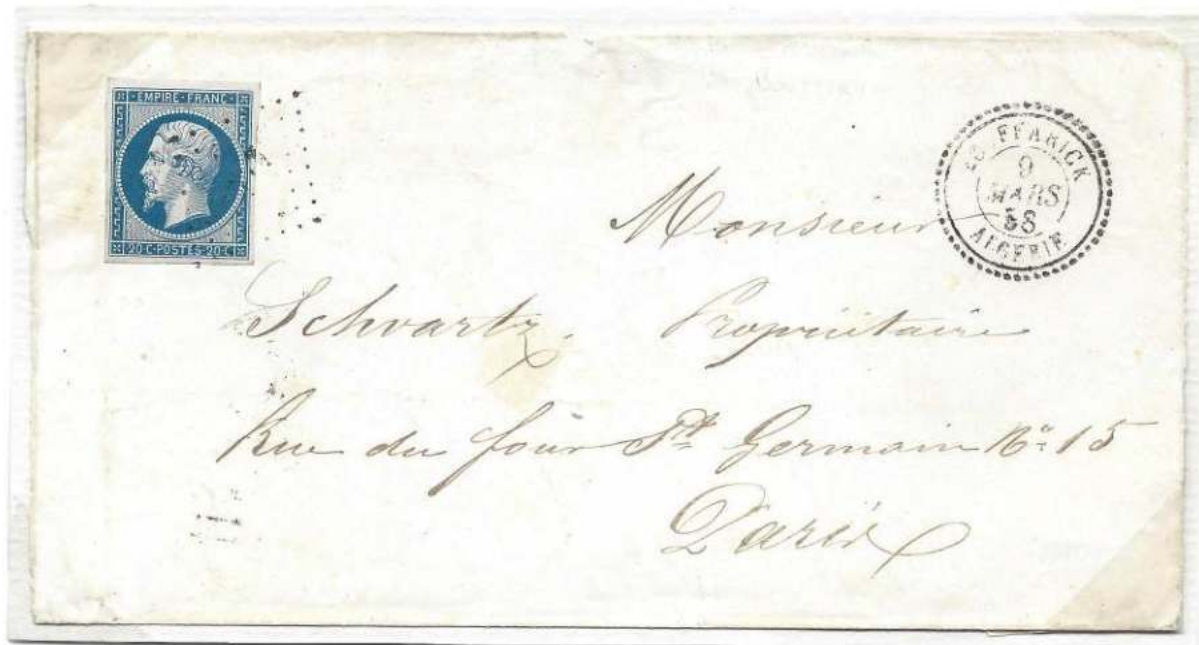 EMPIRE FRANC
20 C POSTES 20 C
BOUFFARICK
9
MARS
58
ALGERIE
Monsieur
Schvartz. Propriétaire
Rue du four St Germain No 15
Paris